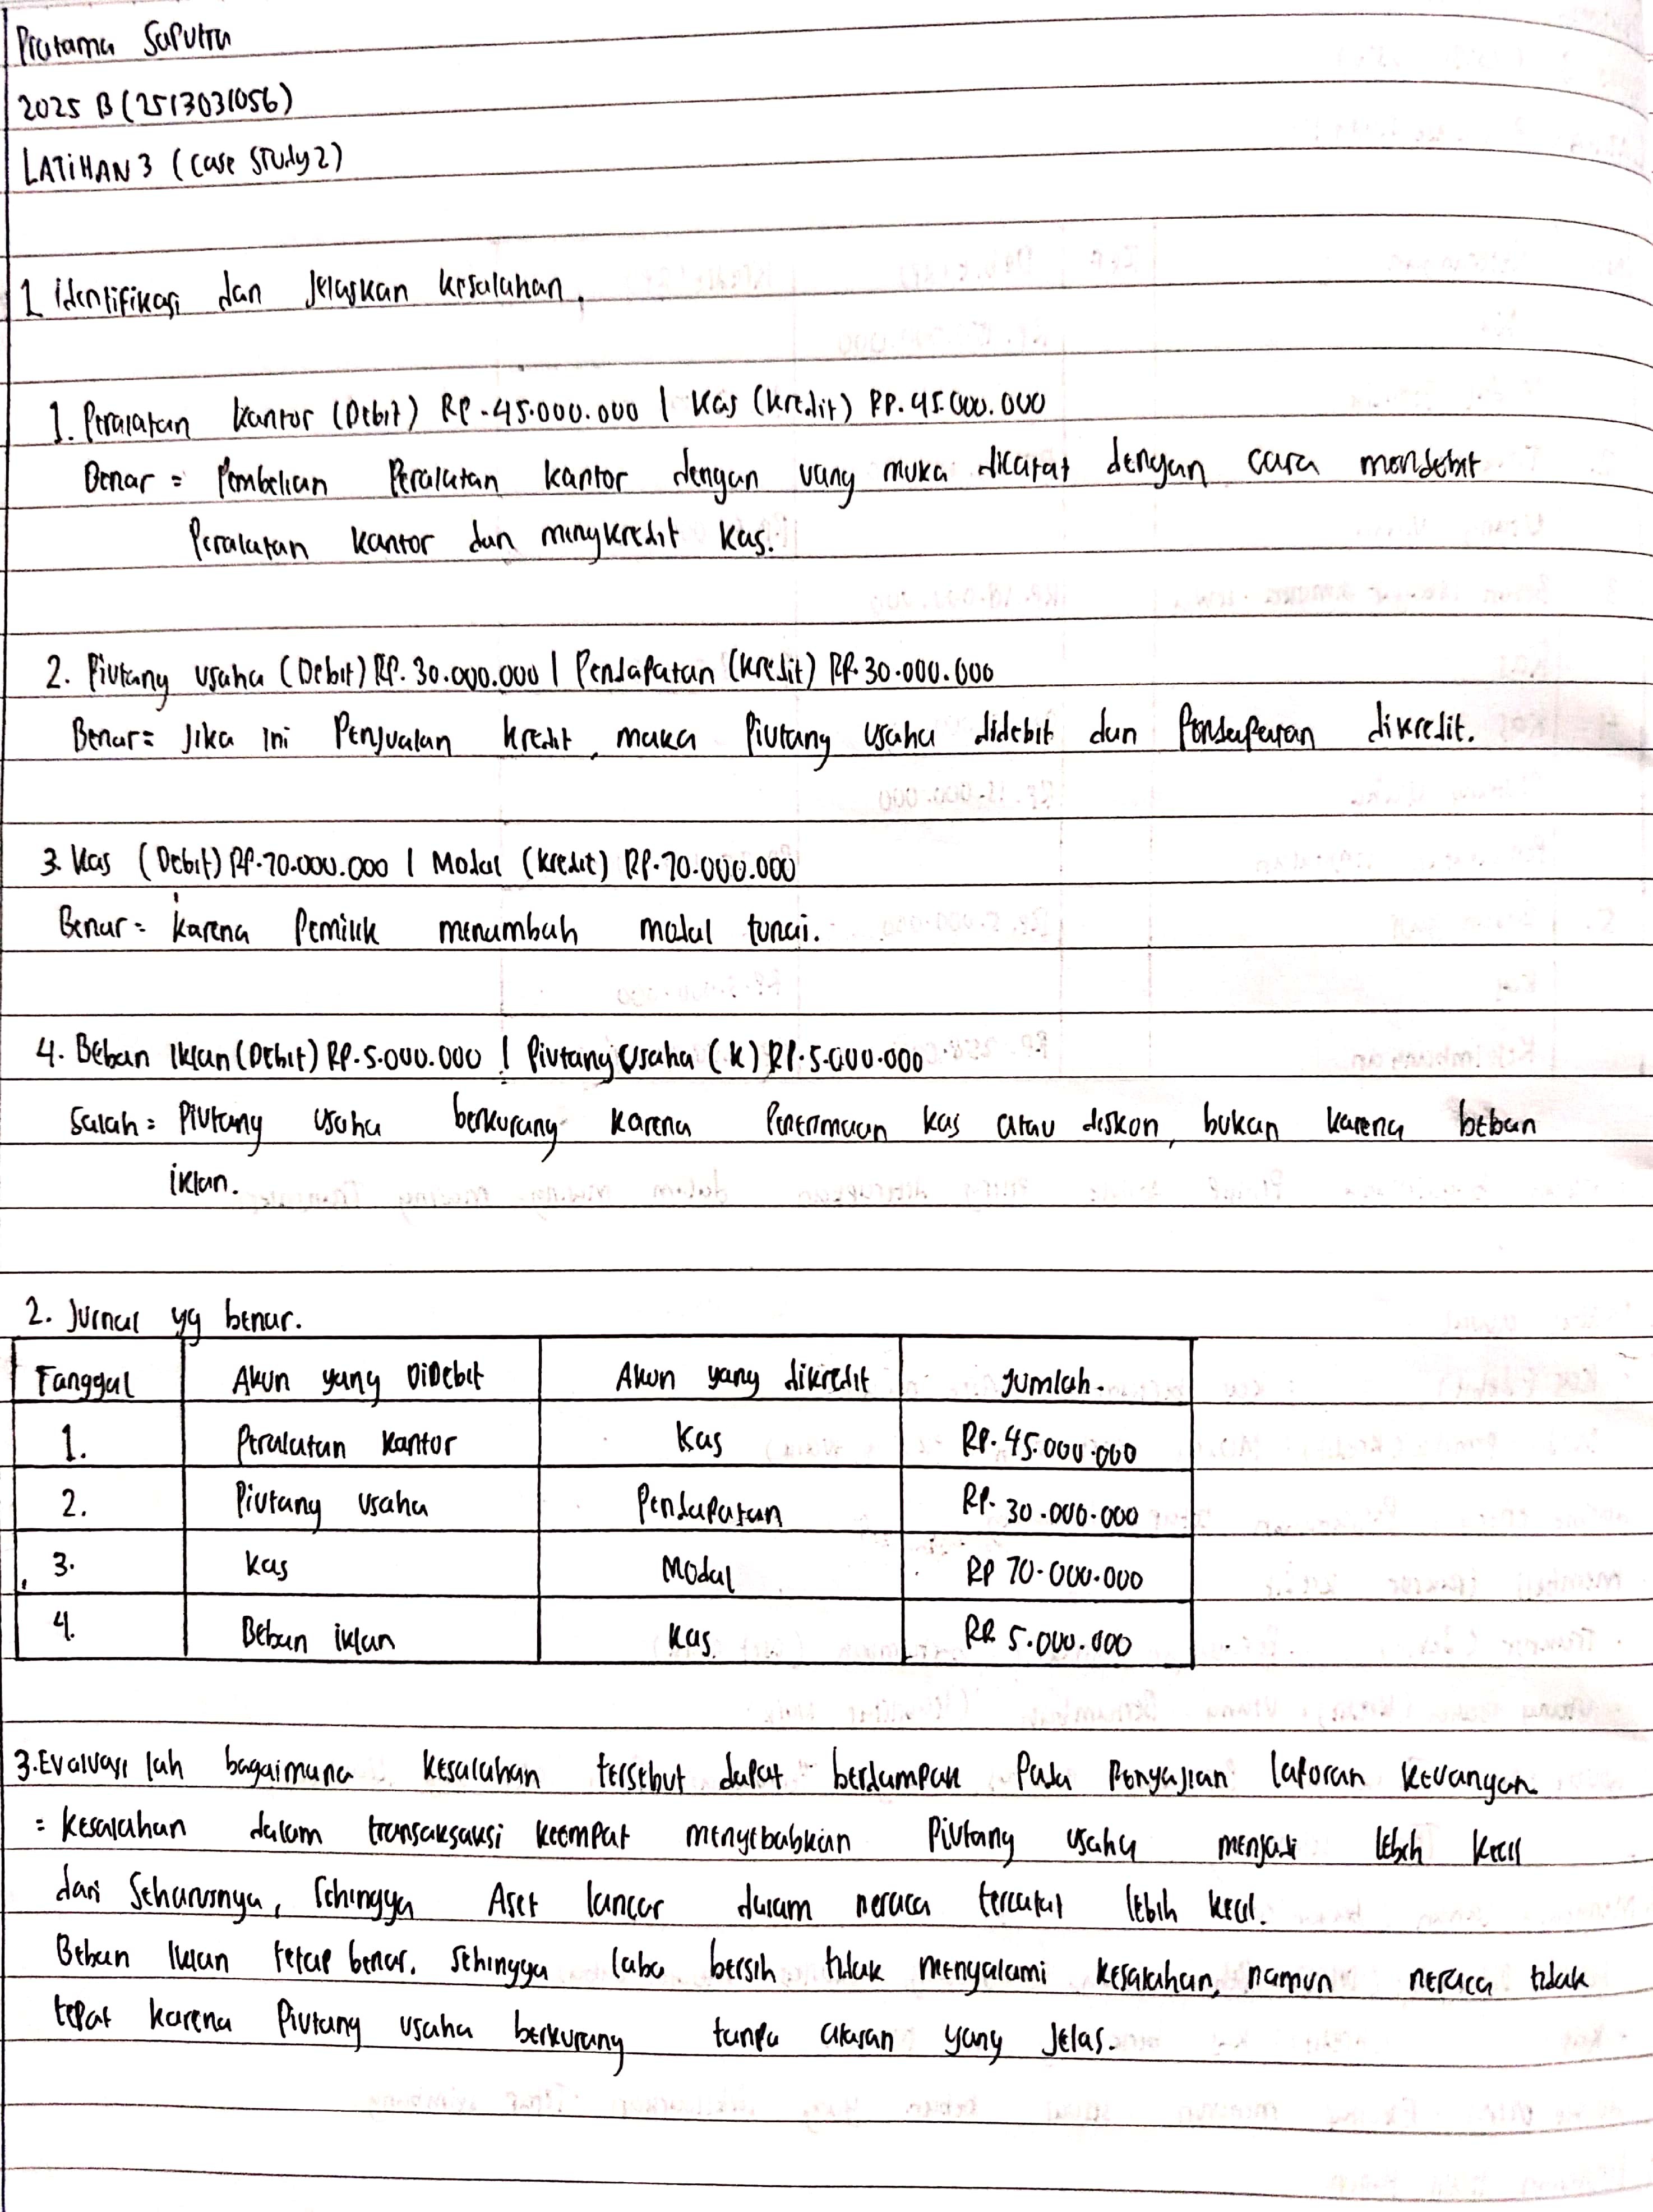 Pratama Saputra
2025 B (2513031056)
LATIHAN 3 (Case Study 2)
1 identifikasi dan Jelaskan kesalahan.
1. Peralatan kantor (Debit) RP.45.000.000 | Kas (kredit) RP.45.000.000
Benar = Pembelian Peralatan kantor dengan uang muka dicatat dengan cara mendebit
Peralatan kantor dan mengkredit kas.
2. Piutang usaha (Debit) RP.30.000.000 | Pendapatan (kredit) RP.30.000.000
Benar = Jika ini Penjualan kredit, maka Piutang usaha didebit dan Pendapatan dikredit.
3. Kas (Debit) RP.70.000.000 | Modal (kredit) RP.70.000.000
Benar = karena Pemilik menambah modal tunai.
4. Beban Iklan (Debit) RP.5.000.000 | Piutang Usaha (K) RP.5.000.000
Salah = Piutang usaha berkurang karena Penerimaan kas atau diskon, bukan karena beban
iklan.
2. Jurnal yg benar.
Tanggal Akun yang DiDebit Akun yang dikredit Jumlah.
1. Peralatan kantor Kas RP.45.000.000
2. Piutang usaha Pendapatan RP.30.000.000
3. Kas Modal RP 70.000.000
4. Beban iklan Kas RP. 5.000.000
3. Evaluasi lah bagaimana kesalahan tersebut dapat berdampak Pada Penyajian laporan keuangan.
= kesalahan dalam transaksaksi keempat menyebabkan Piutang usaha menjadi lebih kecil
dari Seharusnya, Sehingga Aset lancar dalam neraca tercatat lebih kecil.
Beban Iklan tetap benar. Sehingga laba bersih tidak mengalami kesalahan, namun neraca tidak
tepat karena Piutang usaha berkurang tanpa alasan yang Jelas.